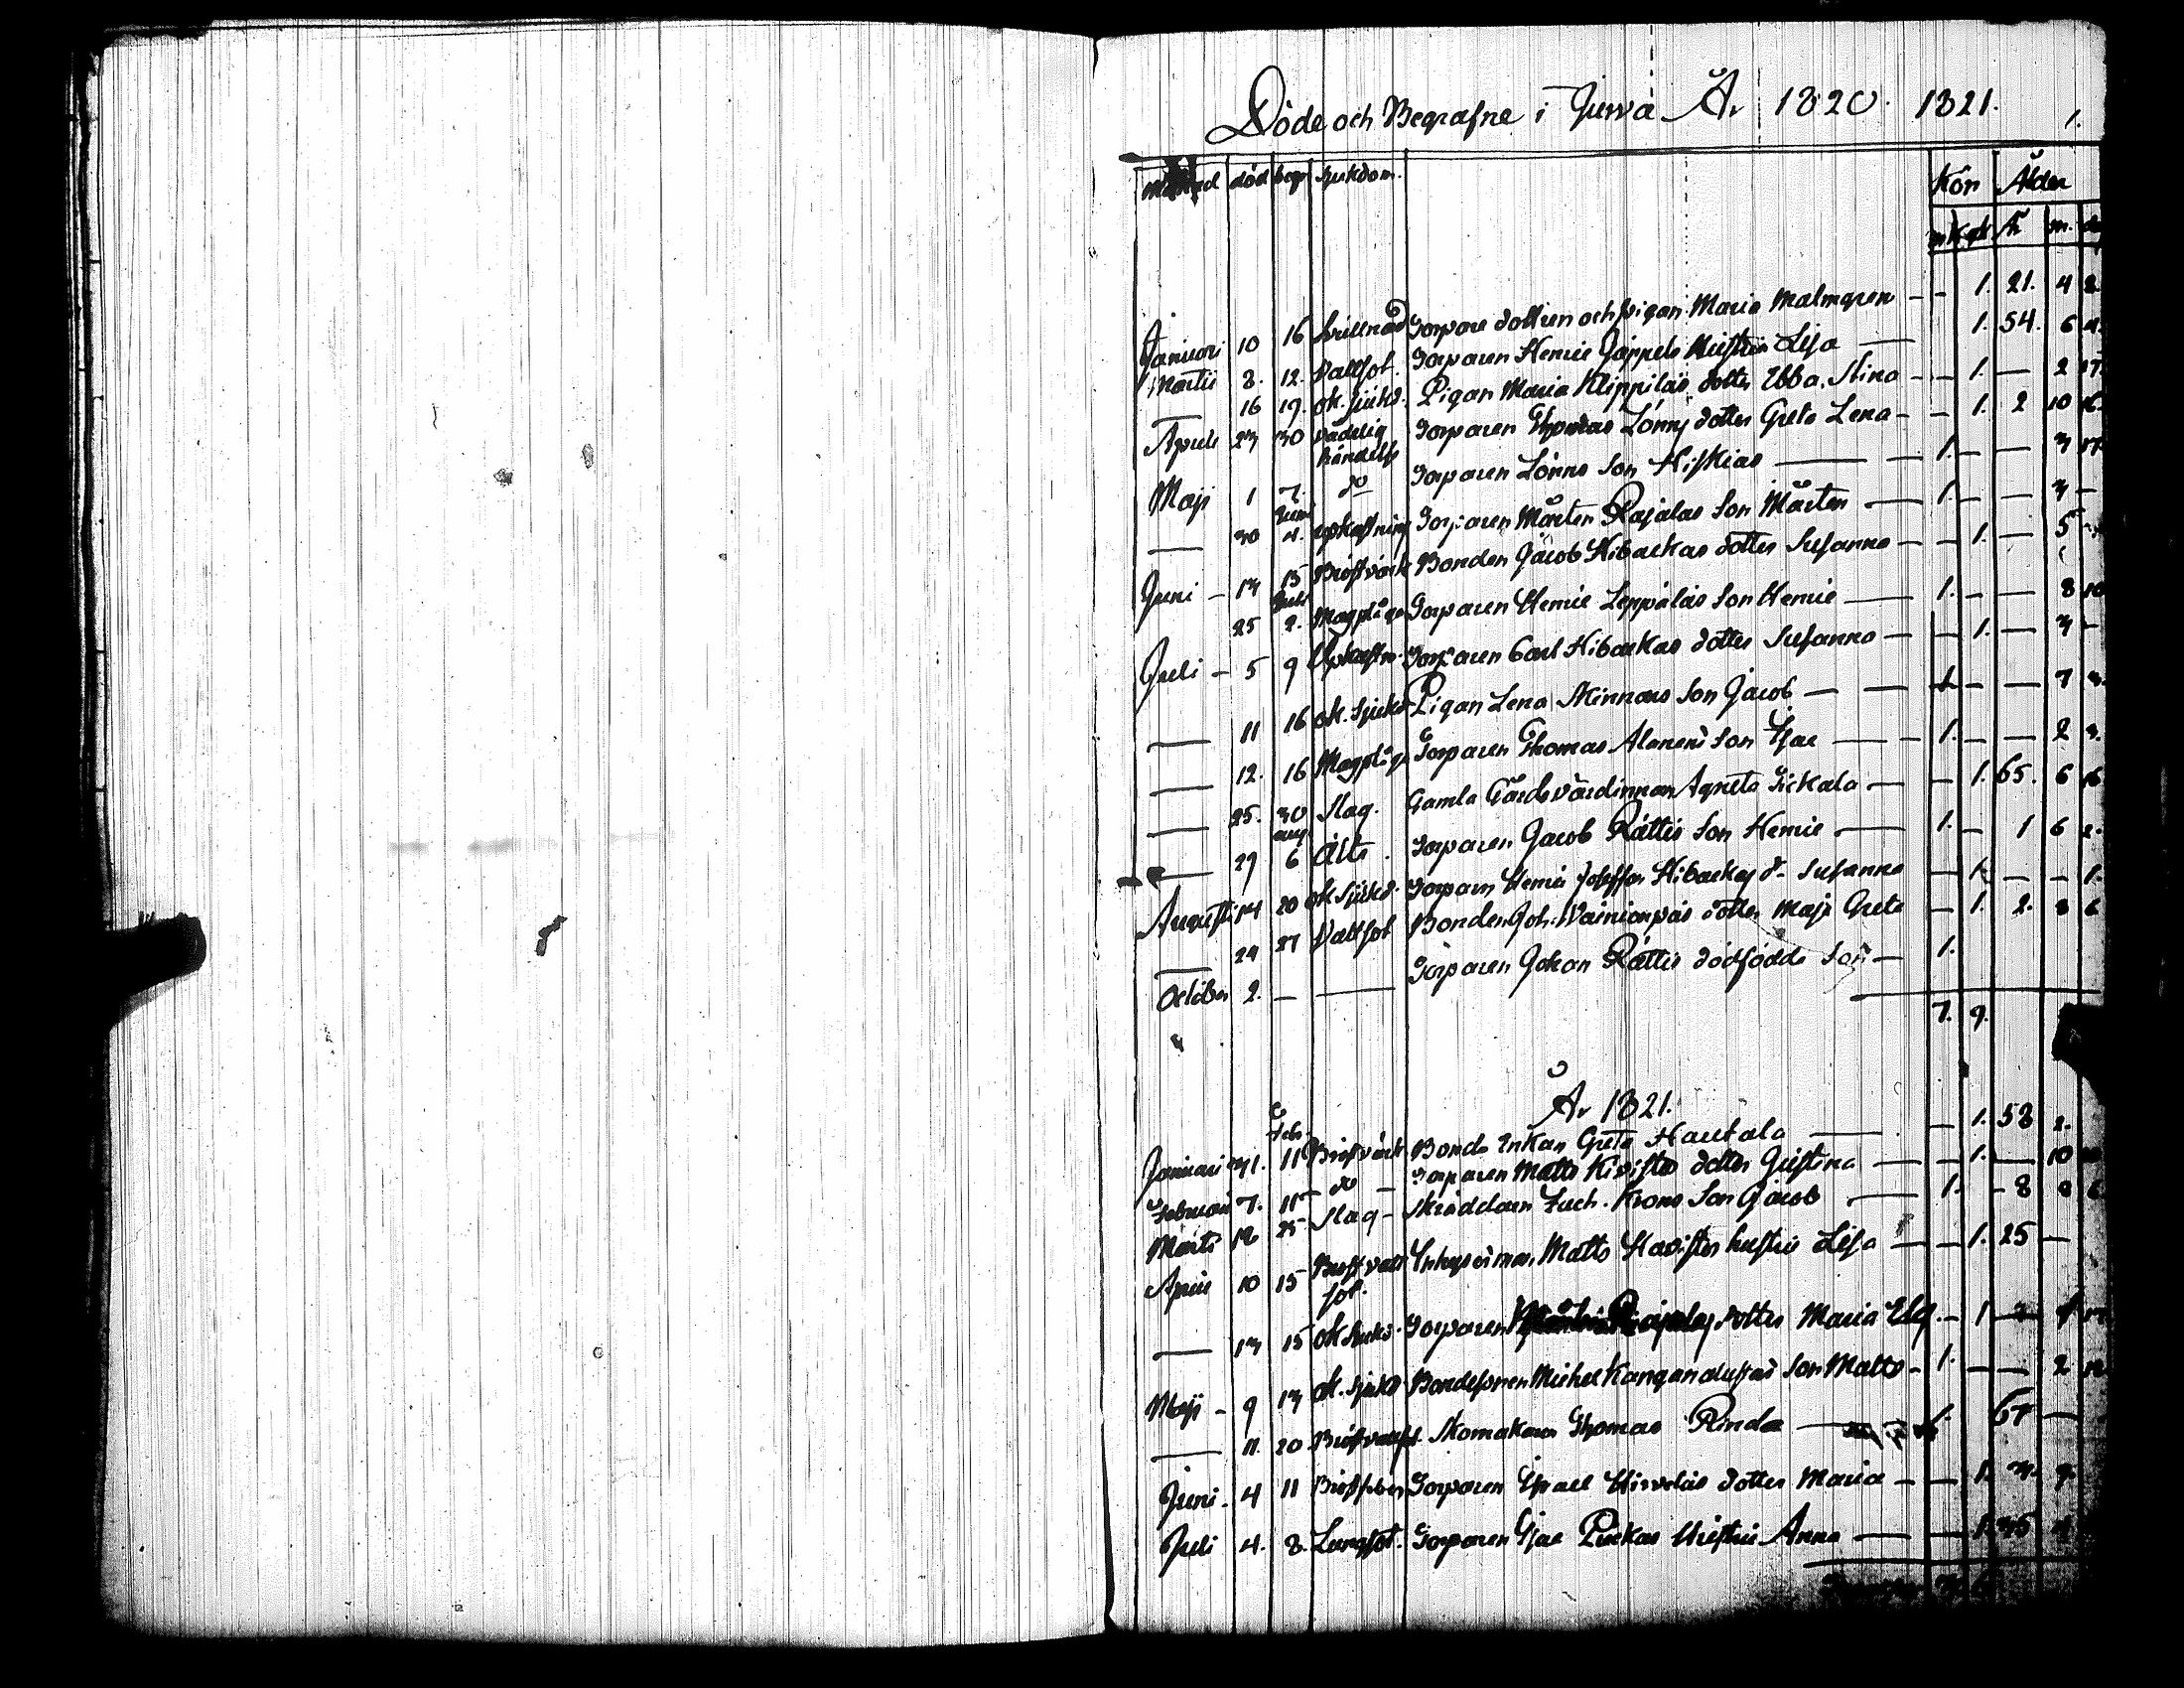 Döde och Begrafne i Jurva År 1820. 1821.
1.
Månad död begr Sjukdom. Kön Ålder
mk qk År m. d.
Januari 10 16 Svullnad Torpare dottren och pigan Maria Malmgren - - 1. 21. 4 2
Martii 8. 12. Vattsot. Torparen Henric Jäppels Hustru Lisa — 1. 54. 6 4.
— 16 19. ok. sjukd. Pigan Maria Klippiläs dotter Ebba Stina - - 1. — 2 17.
April 23 30 vådelig händelse Torparen Thomas Lönns dotter Greta Lena - - 1. 2 10 16.
Maji 1 7. do Torparen Lönns Son Hiskias — 1. — — 3 17.
— 30 Juni 4. upkastning Torparen Mårten Rajalas Son Mårten — 1. — — 3 —
Juni - 13 15 Bröstvärk Bonden Jacob Hibackas dotter Susanna - - 1. — 5
25 Juli 2. Magplåga Torparen Henric Leppäläs Son Henric — 1. — — 8 10
Juli - 5 9 Upkastn. Torparen Carl Hibackas dotter Susanna - - 1. — 3 -
— 11 16 ok. sjukd. Pigan Lena Skinnars Son Jacob — — 1 - — 7 3.
— 12. 16 Magplåga Torparen Thomas Alanens Son Isac — - 1. — — 2 3.
— 25. 30 Slag. Gamla Gårdsvärdinnan Agneta Sickala — - 1. 65. 6 16
— 27 aug 6 Ålte. Torparen Jacob Rättis Son Henric — 1. — 1 6 2.
Augusti 14 20 ok sjukd. Torparn Henric Josefsson Hibackas d- Susanna — 1. — — 1.
— 24 27 Vattsot Bonden Joh. Wainionpäs dotter Maja Greta — 1. 2. 8 6
October 2. — — Torparen Johan Rättis dödfödde Son — 1.
7. 9.
År 1821.
Januari 31. Feb. 11 Bröstvärk Bonde Enkan Greta Hautala — — 1. 58 2.
Februari 7. 11 do - Torparen Matts Kivistos dotter Justina — — 1. — 10
Marti 12 25 Slag - Skräddaren Zach. Krons Son Jacob — 1. - 8 8 6
April 10 15 Bröst vatt sot. Inhyses man Matts Havistos hustru Lisa — — 1. 25 —
— 13 15 ok sjukd. Torparen dotter Maria - 1
Maji - 9 13 ok. sjukd. Bondesonen Michel Kanganalustas Son Matts - 1. — — 2 12
— 11. 20 Bröstvattst. Skomakarn Thomas Rinda — 1. 67 —
Juni. 4 11 Bröstfeber Torparen Israel Hirveläs dotter Maria - — 1. 3. 9.
Juli 4. 8. Lungsot. Torparen Isac Pirkas Hustru Anna — — 1 35 4